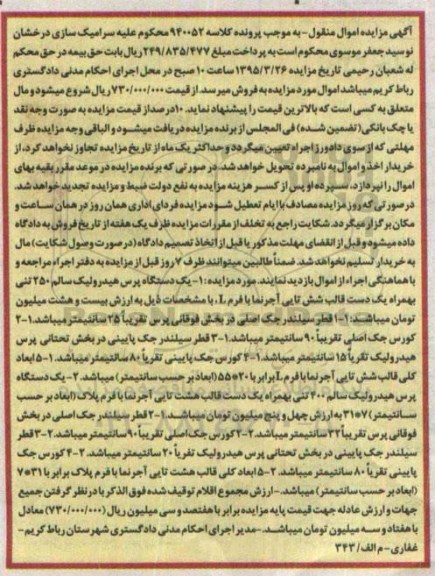 آگهی مزایده اموال منقول- به موجب پرونده کلاسه ۹۴۰۰۵۲ محکوم علیه سرامیک سازی درخشان
نوسید جعفر موسوی محکوم است به پرداخت مبلغ ۲۴۹/۸۳۵/۴۷۷ ریال بابت حق بیمه در حق محکم
له شعبان رحیمی تاریخ مزایده ۱۳۹۵/۳/۲۶ ساعت ۱۰ صبح در محل اجرای احکام مدنی دادگستری
رباط کریم میباشد اموال مورد مزایده به فروش میرسد. از قیمت ۷۳۰/۰۰۰/۰۰۰ ریال شروع میشود و مال
متعلق به کسی است که بالاترین قیمت را پیشنهاد نماید. ۱۰درصد از قیمت مزایده به صورت وجه نقد
یا چک بانکی (تضمین شده) فی المجلس از برنده مزایده دریافت میشود و الباقی وجه مزایده ظرف
مهلتی که از سوی دادورز اجراء تعیین میگردد و حداکثر یک ماه از تاریخ مزایده تجاوز نخواهد کرد، از
خریدار اخذ و اموال به نامبرده تحویل خواهد شد. در صورتی که برنده مزایده در موعد مقرر بقیه بهای
اموال را نپردازد، سپرده او پس از کسر هزینه مزایده به نفع دولت ضبط و مزایده تجدید خواهد شد.
در صورتی که روز مزایده مصادف با ایام تعطیل شود مزایده فردای اداری همان روز در همان ساعت و
مکان برگزار میگردد. شکایت راجع به تخلف از مقررات مزایده ظرف یک هفته از تاریخ فروش به دادگاه
داده میشود و قبل از انقضای مهلت مذکور یا قبل از اتخاذ تصمیم دادگاه (در صورت وصول شکایت) مال
به خریدار تسلیم نخواهد شد. ضمناً طالبین میتوانند ظرف ۷ روز قبل از مزایده به دفتر اجراء مراجعه و
با هماهنگی اجراء از اموال بازدید نمایند. مورد مزایده: ۱- یک دستگاه پرس هیدرولیک سالم ۲۵۰ تنی
بهمراه یک دست قالب شش تایی آجرنما با فرم L، با مشخصات ذیل به ارزش بیست و هشت میلیون
تومان میباشد: ۱-۱ قطر سیلندر جک اصلی در بخش فوقانی پرس تقریباً ۲۵ سانتیمتر میباشد. ۱-۲
کورس جک اصلی تقریباً ۹۰ سانتیمتر میباشد. ۱-۳ قطر سیلندر جک پایینی در بخش تحتانی پرس
هیدرولیک تقریباً ۱۵ سانتیمتر میباشد. ۱-۴ کورس جک پایینی تقریباً ۸۰ سانتیمتر میباشد. ۱-۵ ابعاد
کلی قالب شش تایی آجرنما با فرم L برابر با ۲۰*۵۵ (ابعاد بر حسب سانتیمتر) میباشد. ۲- یک دستگاه
پرس هیدرولیک سالم ۴۰۰ تنی بهمراه یک دست قالب هشت تایی آجرنما با فرم پلاک (ابعاد بر حسب
سانتیمتر) ۷*۳۱ به ارزش چهل و پنج میلیون تومان میباشد. ۲-۱ قطر سیلندر جک اصلی در بخش
فوقانی پرس تقریباً ۳۲ سانتیمتر میباشد. ۲-۲ کورس جک اصلی تقریباً ۹۰ سانتیمتر میباشد. ۲-۳ قطر
سیلندر جک پایینی در بخش تحتانی پرس هیدرولیک تقریباً ۲۰ سانتیمتر میباشد. ۲-۴ کورس جک
پایینی تقریباً ۸۰ سانتیمتر میباشد. ۲-۵ ابعاد کلی قالب هشت تایی آجرنما با فرم پلاک برابر با ۳۱*۷
(ابعاد بر حسب سانتیمتر) میباشد.- ارزش مجموع اقلام توقیف شده فوق الذکر با در نظر گرفتن جمیع
جهات و ارزش عادله جهت قیمت پایه مزایده برابر با هفتصد و سی میلیون ریال (۷۳۰/۰۰۰/۰۰۰) معادل
با هفتاد و سه میلیون تومان میباشد.- مدیر اجرای احکام مدنی دادگستری شهرستان رباط کریم-
غفاری- م الف/ ۳۴۳